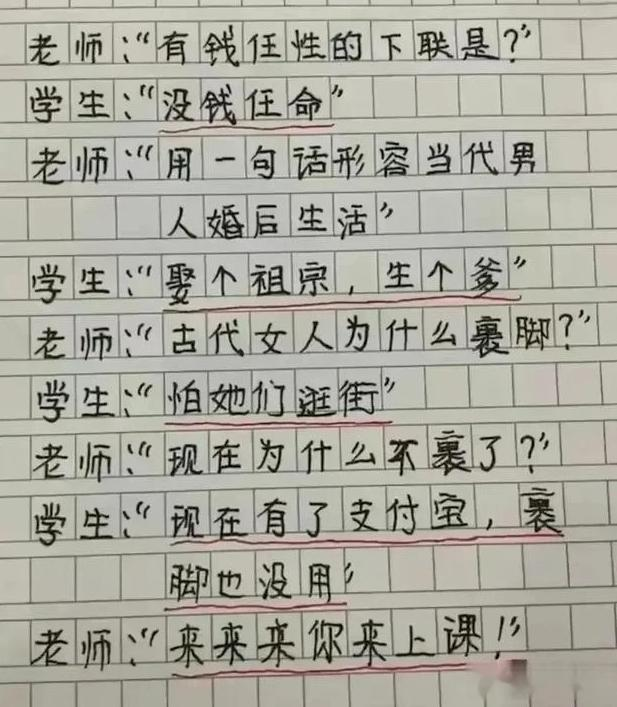 老师:“有钱任性的下联是?”
学生:“没钱任命”
老师:“用一句话形容当代男
人婚后生活”
学生:“娶个祖宗,生个爹”
老师:“古代女人为什么裹脚?”
学生:“怕她们逛街”
老师:“现在为什么不裹了?”
学生:“现在有了支付宝,裹
脚也没用”
老师:“来来来你来上课!”